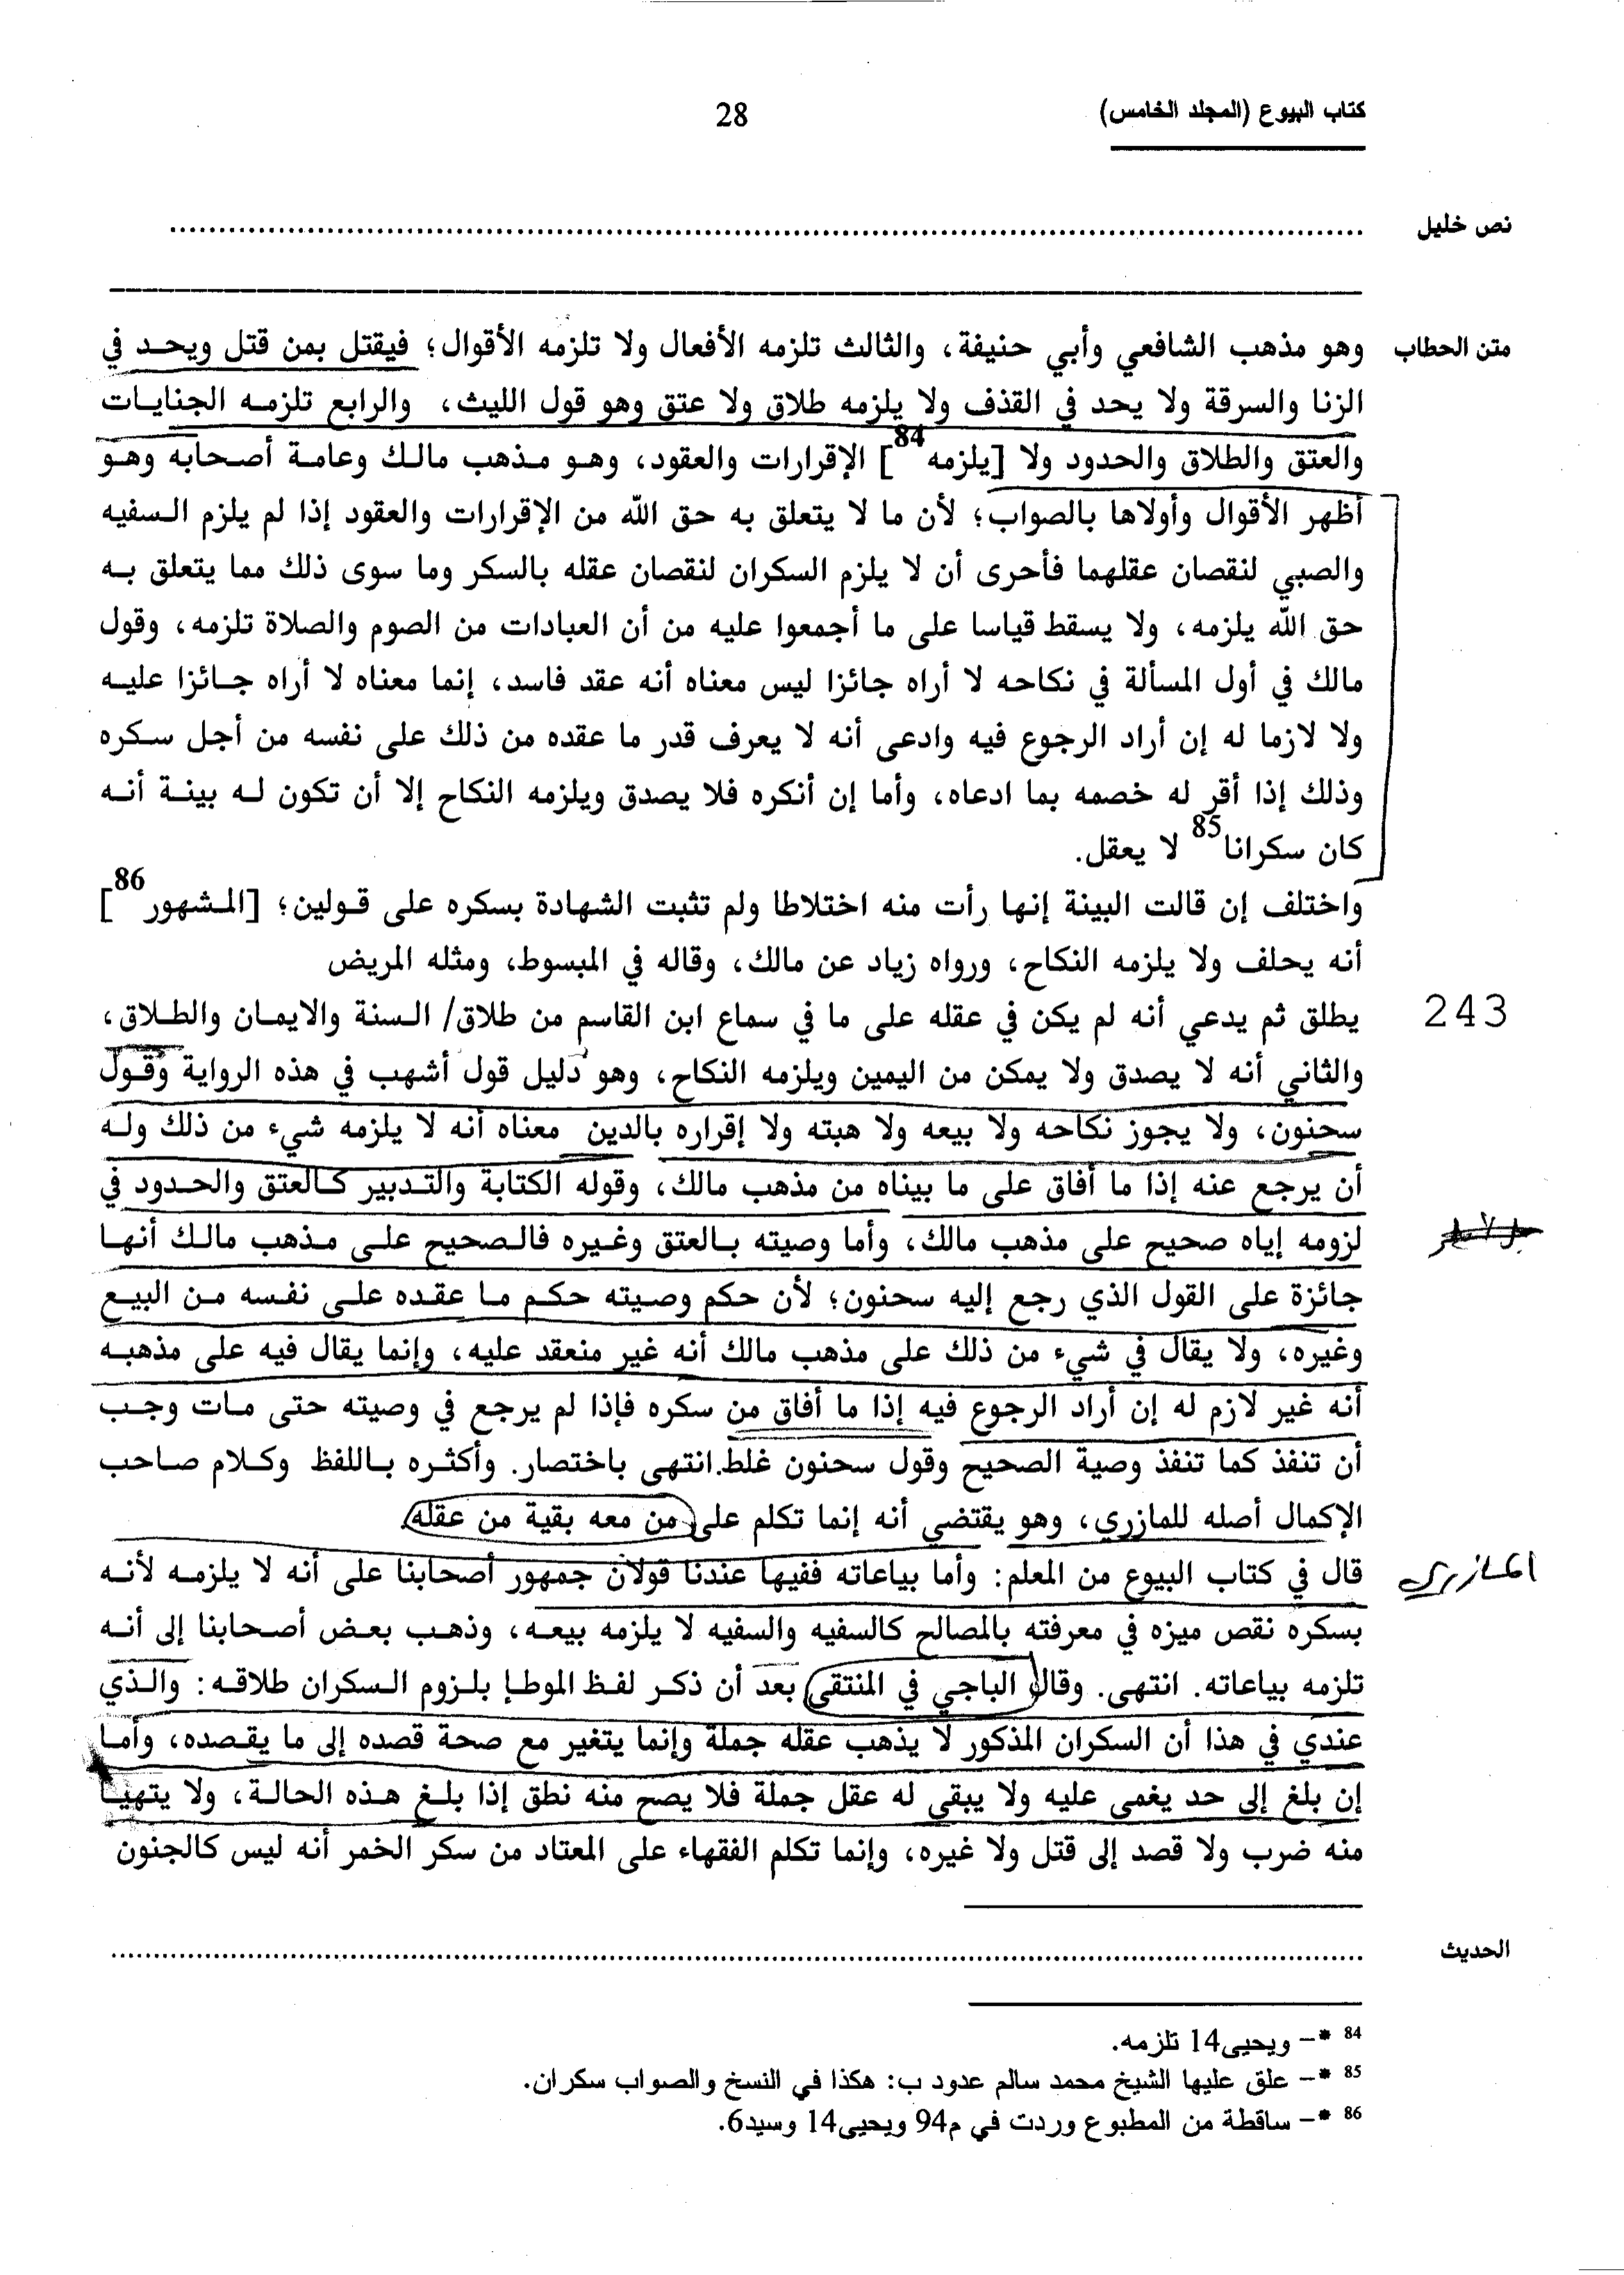 كتاب البيوع (المجلد الخامس)
28
نص خليل ................................................................
متن الحطاب وهو مذهب الشافعي وأبي حنيفة، والثالث تلزمه الأفعال ولا تلزمه الأقوال؛ فيقتل بمن قتل ويحد في
الزنا والسرقة ولا يحد في القذف ولا يلزمه طلاق ولا عتق وهو قول الليث، والرابع تلزمه الجنايات
والعتق والطلاق والحدود ولا [يلزمه84] الإقرارات والعقود، وهو مذهب مالك وعامة أصحابه وهو
أظهر الأقوال وأولاها بالصواب؛ لأن ما لا يتعلق به حق الله من الإقرارات والعقود إذا لم يلزم السفيه
والصبي لنقصان عقلهما فأحرى أن لا يلزم السكران لنقصان عقله بالسكر وما سوى ذلك مما يتعلق به
حق الله يلزمه، ولا يسقط قياسا على ما أجمعوا عليه من أن العبادات من الصوم والصلاة تلزمه، وقول
مالك في أول المسألة في نكاحه لا أراه جائزا ليس معناه أنه عقد فاسد، إنما معناه لا أراه جائزا عليه
ولا لازما له إن أراد الرجوع فيه وادعى أنه لا يعرف قدر ما عقده من ذلك على نفسه من أجل سكره
وذلك إذا أقر له خصمه بما ادعاه، وأما إن أنكره فلا يصدق ويلزمه النكاح إلا أن تكون له بينة أنه
كان سكرانا85 لا يعقل.
واختلف إن قالت البينة إنها رأت منه اختلاطا ولم تثبت الشهادة بسكره على قولين؛ [المشهور86]
أنه يحلف ولا يلزمه النكاح، ورواه زياد عن مالك، وقاله في المبسوط، ومثله المريض
243 يطلق ثم يدعي أنه لم يكن في عقله على ما في سماع ابن القاسم من طلاق/ السنة والايمان والطلاق،
والثاني أنه لا يصدق ولا يمكن من اليمين ويلزمه النكاح، وهو دليل قول أشهب في هذه الرواية وقول
سحنون، ولا يجوز نكاحه ولا بيعه ولا هبته ولا إقراره بالدين معناه أنه لا يلزمه شيء من ذلك وله
أن يرجع عنه إذا ما أفاق على ما بيناه من مذهب مالك، وقوله الكتابة والتدبير كالعتق والحدود في
لزومه إياه صحيح على مذهب مالك، وأما وصيته بالعتق وغيره فالصحيح على مذهب مالك أنها
جائزة على القول الذي رجع إليه سحنون؛ لأن حكم وصيته حكم ما عقده على نفسه من البيع
وغيره، ولا يقال في شيء من ذلك على مذهب مالك أنه غير منعقد عليه، وإنما يقال فيه على مذهبه
أنه غير لازم له إن أراد الرجوع فيه إذا ما أفاق من سكره فإذا لم يرجع في وصيته حتى مات وجب
أن تنفذ كما تنفذ وصية الصحيح وقول سحنون غلط.انتهى باختصار. وأكثره باللفظ وكلام صاحب
الإكمال أصله للمازري، وهو يقتضي أنه إنما تكلم على من معه بقية من عقله.
قال في كتاب البيوع من المعلم: وأما بياعاته ففيها عندنا قولان جمهور أصحابنا على أنه لا يلزمه لأنه
المازري
بسكره نقص ميزه في معرفته بالمصالح كالسفيه والسفيه لا يلزمه بيعه، وذهب بعض أصحابنا إلى أنه
تلزمه بياعاته. انتهى. وقال الباجي في المنتقى بعد أن ذكر لفظ الموطإ بلزوم السكران طلاقه: والذي
عندي في هذا أن السكران المذكور لا يذهب عقله جملة وإنما يتغير مع صحة قصده إلى ما يقصده، وأما
إن بلغ إلى حد يغمى عليه ولا يبقى له عقل جملة فلا يصح منه نطق إذا بلغ هذه الحالة، ولا يتهيأ
منه ضرب ولا قصد إلى قتل ولا غيره، وإنما تكلم الفقهاء على المعتاد من سكر الخمر أنه ليس كالجنون
الحديث ................................................................
84 *– ويحيى14 تلزمه.
85 *– علق عليها الشيخ محمد سالم عدود ب: هكذا في النسخ والصواب سكران.
86 *– ساقطة من المطبوع وردت في م94 ويحيى14 وسيد6.